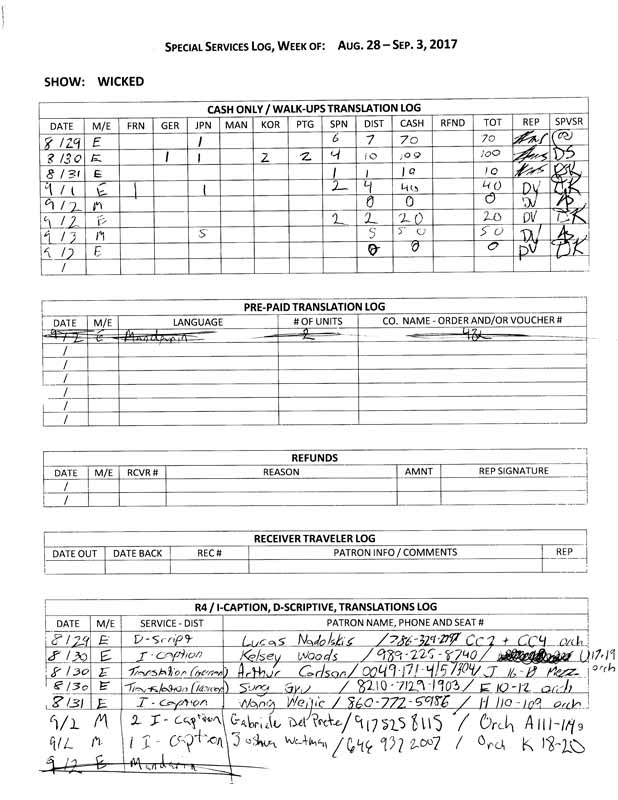 SPECIAL SERVICES LOG, WEEK OF: AUG. 28 – SEP. 3, 2017
SHOW: WICKED
CASH ONLY / WALK-UPS TRANSLATION LOG
DATE M/E FRN GER JPN MAN KOR PTG SPN DIST CASH RFND TOT REP SPVSR
8/29 E 1 6 7 70 70
8/30 E 1 1 2 2 4 10 100 100 DS
8/31 E 1 1 10 10 BK
9/1 E 1 1 2 4 40 40 DV BK
9/2 M 0 0 0 DV
9/2 E 2 2 20 20 DV BK
9/3 M 5 5 50 50 DV
9/2 E 0 0 0 DV BK
/
PRE-PAID TRANSLATION LOG
DATE M/E LANGUAGE # OF UNITS CO. NAME - ORDER AND/OR VOUCHER #
9/2 E Mandarin 2
/
/
/
/
/
/
REFUNDS
DATE M/E RCVR # REASON AMNT REP SIGNATURE
/
/
RECEIVER TRAVELER LOG
DATE OUT DATE BACK REC # PATRON INFO / COMMENTS REP
R4 / I-CAPTION, D-SCRIPTIVE, TRANSLATIONS LOG
DATE M/E SERVICE - DIST PATRON NAME, PHONE AND SEAT #
8/29 E D-Script Lucas Nadolskis / CC2 + CC4 orch
8/30 E I-Caption Kelsey Woods / 989-225-8740 / U17-19 orch
8/30 E Translation (German) Arthur Carlson / J 16-18 Mezz
8/30 E Translation Sung Gyu / 8210-7129-1903 / E 10-12 orch
8/31 E I-Caption Wang Weijie / 860-772-5986 / H 110-109 orch
9/2 M 2 I-Caption Gabriele Del Prete / 9175258115 / Orch A111-119
9/2 M 1 I-Caption Joshua / 646 937 2007 / Orch K 18-20
9/2 E Mandarin